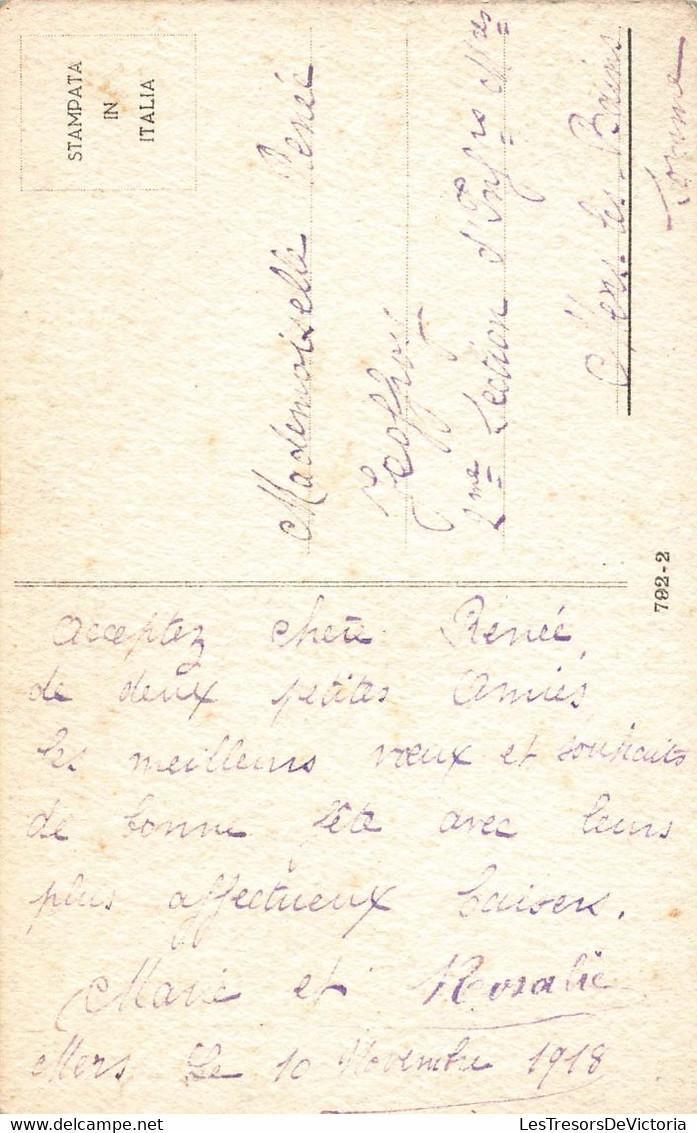 STAMPATA
IN
ITALIA
Mademoiselle Renée
Geffroy
2me Section d'Infres Mres
Mers-les-Bains
Somme
792-2
Acceptez chère Renée,
de deux petites Amies
les meilleurs vœux et souhaits
de bonne fête avec leurs
plus affectueux baisers.
Marie et Rosalie
Mers le 10 Novembre 1918
LesTresorsDeVictoria